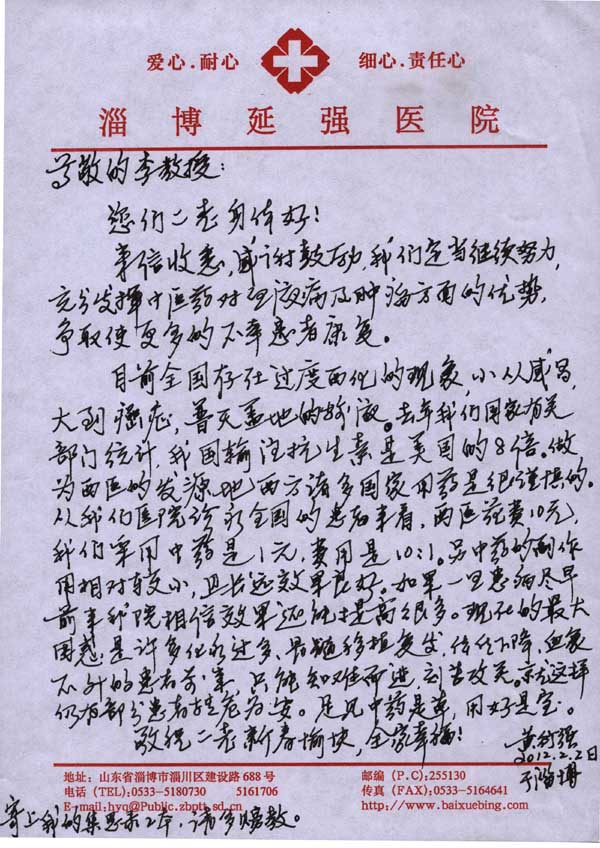 爱心.耐心 细心.责任心
淄博延强医院
尊敬的李教授：
您们二老身体好！
来信收悉，感谢鼓励，我们定当继续努力，
充分发挥中医药对血液病及肿瘤方面的优势，
争取使更多的不幸患者康复。
目前全国存在过度西化的现象，小从感冒，
大到癌症，普天盖地的输液。去年我们国家有关
部门统计，我国输注抗生素是美国的8倍。做
为西医的发源地西方诸多国家用药是很谨慎的。
从我们医院诊疗全国的患者来看，西医花费10元，
我们单用中药是1元，费用是10:1。另中药的副作
用相对较小，且长远效果良好。如果一旦患病尽早
前来我院相信效果还能提高很多。现在的最大
困惑是许多化疗过多、骨髓移植复发，体能下降，血象
不升的患者前来，只能知难而进，刻苦攻关。就这样
仍有部分患者转危为安。足见中药是草，用好是宝。
敬祝二老新春愉快，全家幸福！
黄衍强
2012.2.2日
于淄博
地址：山东省淄博市淄川区建设路688号 邮编 (P.C):255130
电话 (TEL):0533-5180730 5161706 传真 (FAX):0533-5164641
E-mail:hyq@Public.zbptt.sd.cn http://www.baixuebing.com
寄上我的集思录2本，请多赐教。